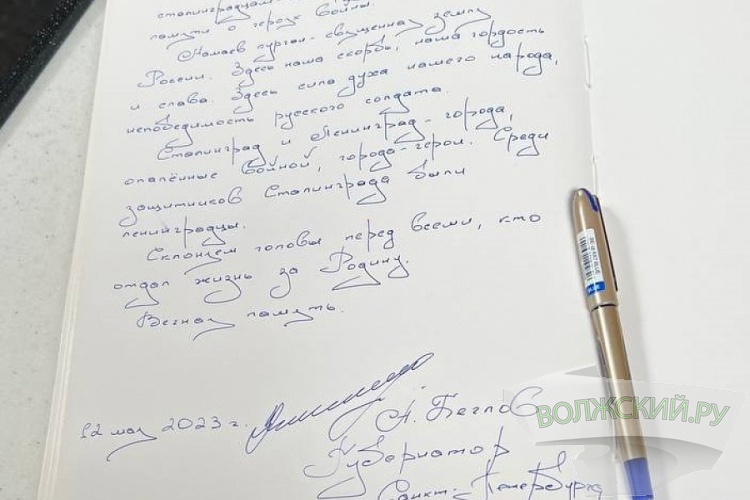 сталинградцам
памяти о герое войны.
Мамаев курган - священная земля
России. Здесь наша скорбь, наша гордость
и слава. Здесь сила духа нашего народа,
непобедимость русского солдата.
Сталинград и Ленинград - города,
опалённые войной, города-герои. Среди
защитников Сталинграда были
ленинградцы.
Склоняем головы перед всеми, кто
отдал жизнь за Родину.
Вечная память.
12 мая 2023 г.
А. Беглов
Губернатор
Санкт-Петербурга
ВОЛЖСКИЙ.РУ